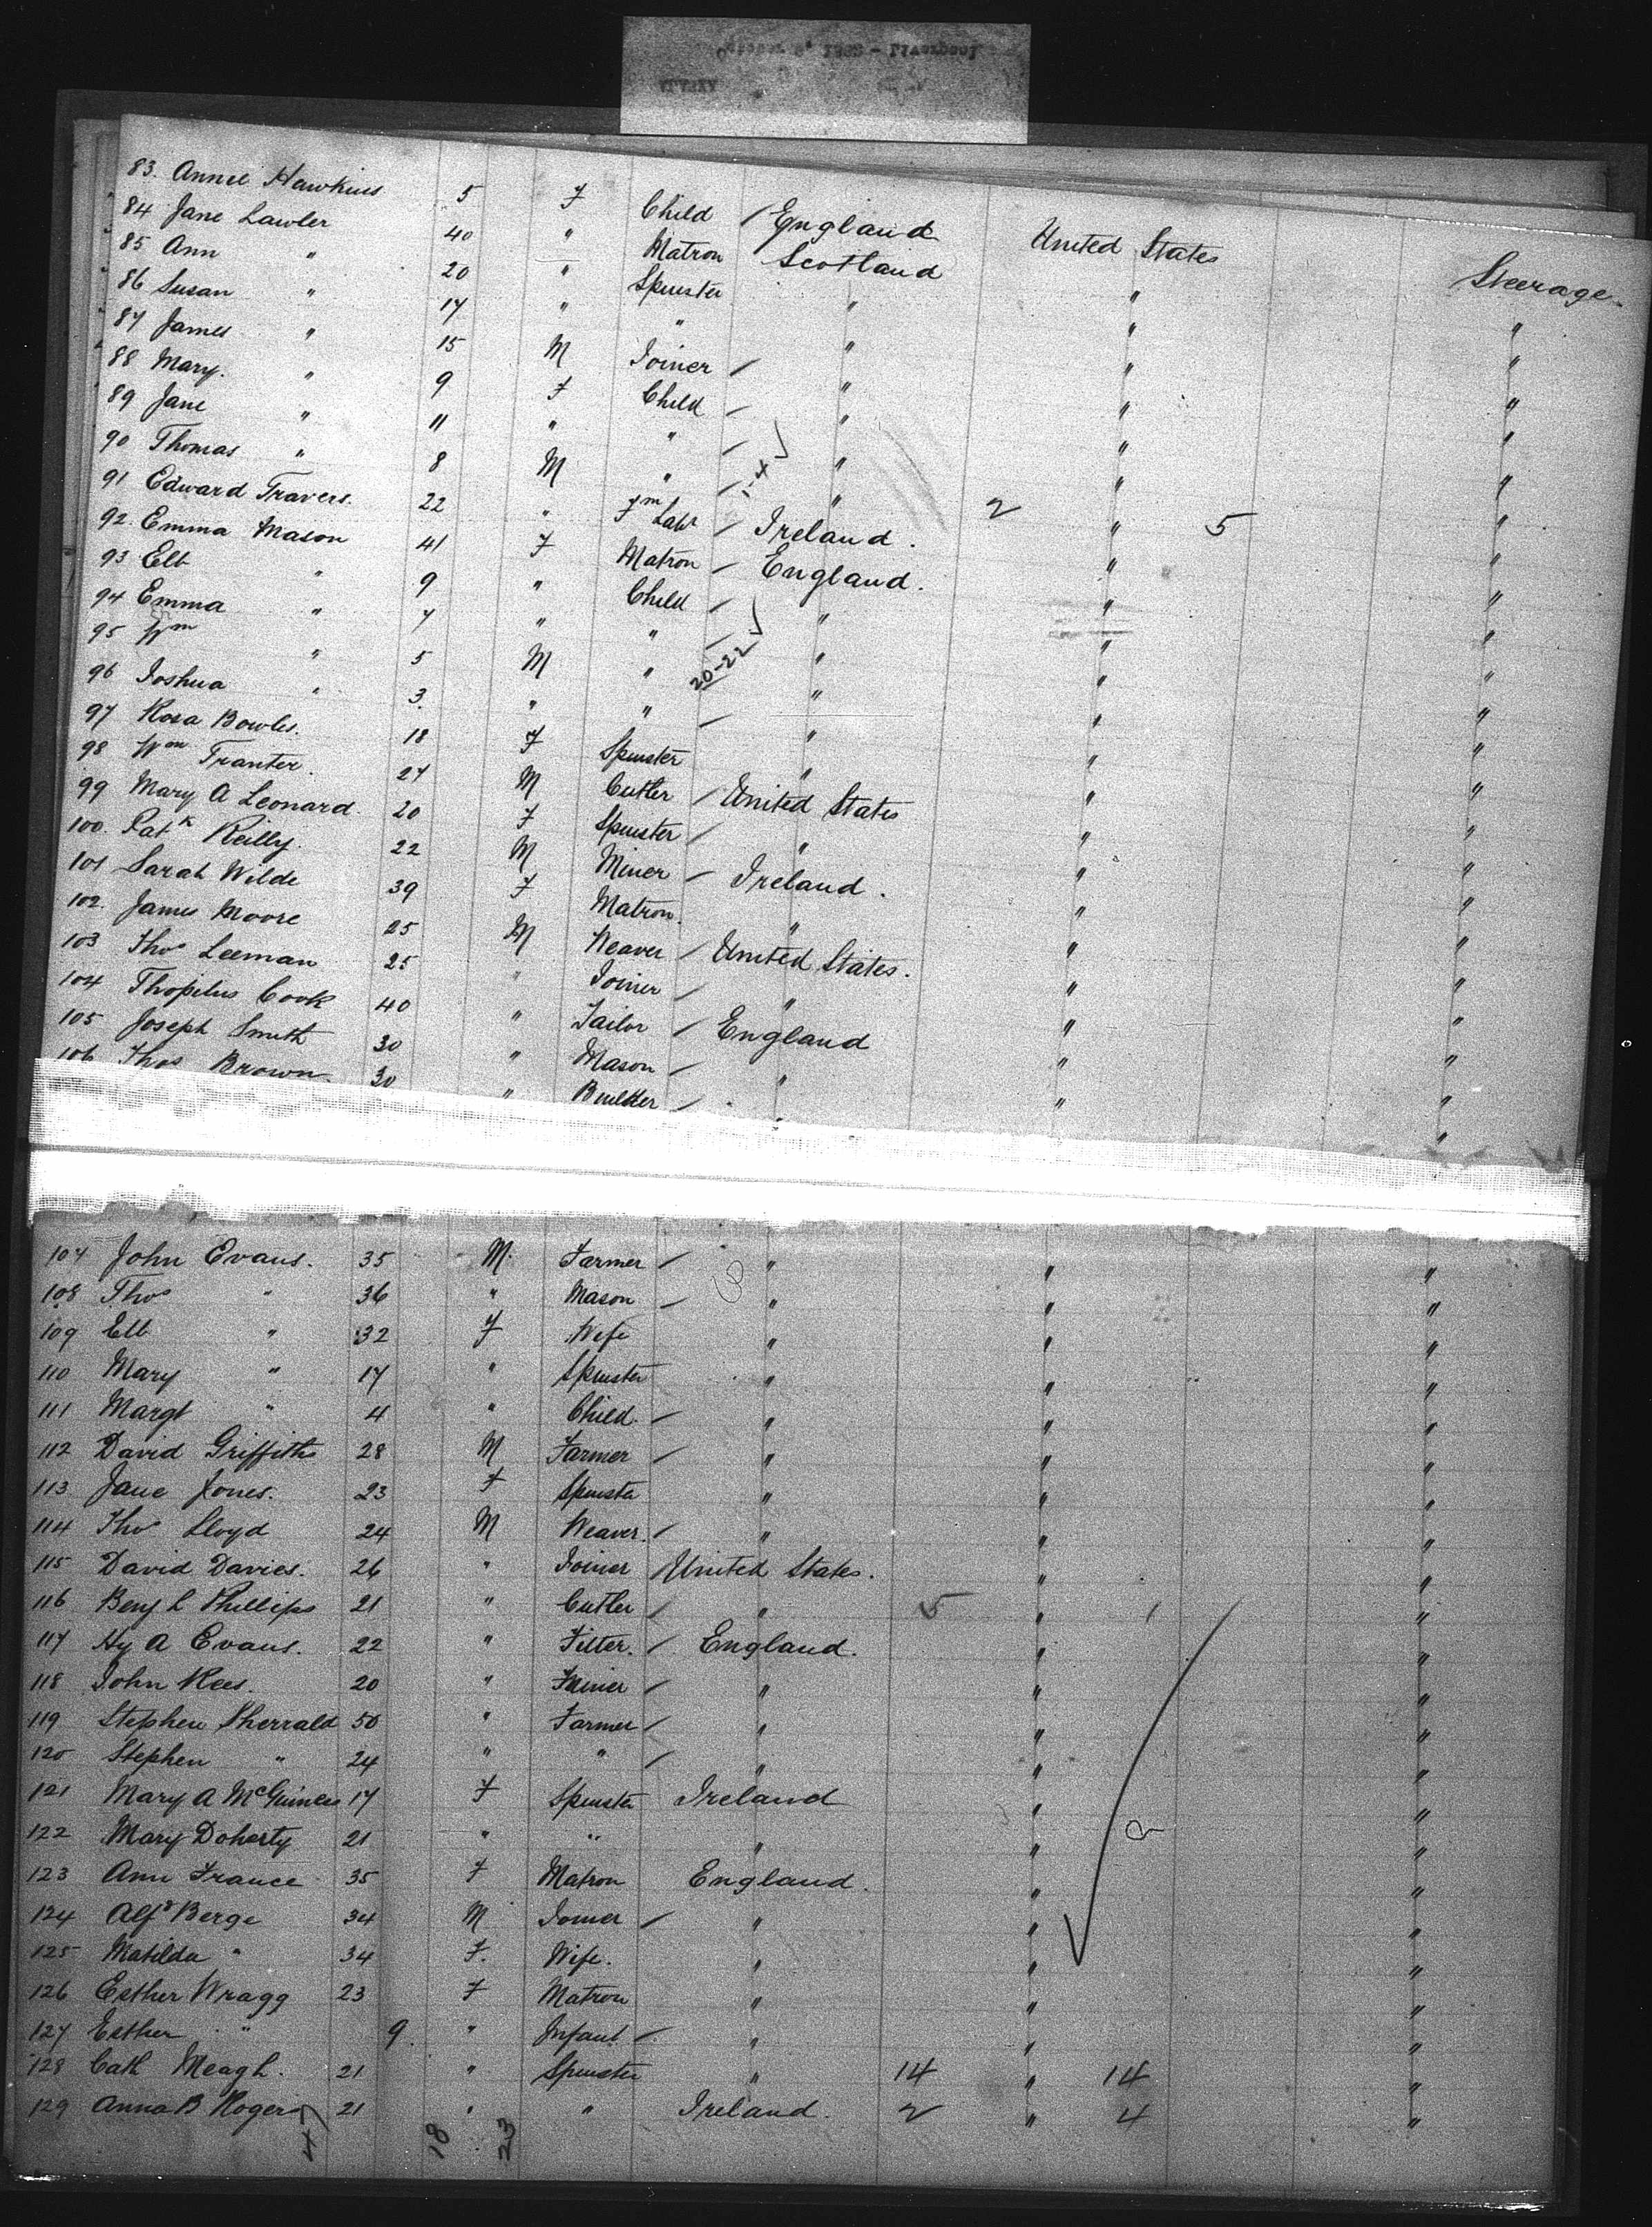 83. Annie Hawkins 5 F Child / England United States Steerage.
84 Jane Lawler 40 " Matron Scotland " "
85 Ann " 20 " Spinster " " "
86 Susan " 17 " " " " "
87 James " 15 M Joiner / " " "
88 Mary. " 9 F Child / " " "
89 Jane " 11 " " / " " "
90 Thomas " 8 M " / " " "
91 Edward Travers. 22 " Fm Labr / Ireland. 2 " 5 "
92. Emma Mason 41 F Matron / England. " "
93 Elb " 9 " Child / " " "
94 Emma " 7 " " / " " "
95 Wm " 5 M " 20-22 " " "
96 Joshua " 3. " " / " " "
97 Rosa Bowles. 18 F Spinster " " "
98 Wm Tranter. 27 M Cutler / United States " "
99 Mary A Leonard. 20 F Spinster / " " "
100. Patk Reilly. 22 M Miner / Ireland. " "
101 Sarah Wilde 39 F Matron. " " "
102. James Moore 25 M Weaver / United States. " "
103 Thos Leeman 25 " Joiner / " " "
104 Thopilus Cook 40 " Tailor / England " "
105 Joseph Smith 30 " Mason / " " "
106 Thos Brown. 30 " Builder / " " "
107 John Evans. 35 M. Farmer / " " "
108 Thos " 36 " Mason / " " "
109 Elb " 32 F Wife " " "
110 Mary " 17 " Spinster " " "
111 Margt " 4 " Child. / " " "
112 David Griffiths 28 M Farmer / " " "
113 Jane Jones. 23 F Spinster " " "
114 Thos Lloyd 24 M Weaver. / " " "
115 David Davies. 26 " Joiner / United States. " "
116 Benj L Phillips 21 " Cutler / " 5 " 1 "
117 Hy A Evans. 22 " Fitter. / England. " "
118 John Rees. 20 " Miner / " " "
119 Stephen Sherrald 50 " Farmer / " " "
120 Stephen " 24 " " / " " "
121 Mary A McGuiness 17 F Spinster Ireland " "
122 Mary Doherty 21 " " " " "
123 Ann France 35 F Matron England. " "
124 Alfd Berge 34 M Joiner / " " "
125 Matilda " 34 F. Wife. " " "
126 Esther Wragg 23 F Matron " " "
127 Esther " 9. " Infant / " " "
128 Cath Meagh. 21 " Spinster " 14 " 14 "
129 Anna B Rogers 21 " " Ireland. 2 " 4 "
47 18 23